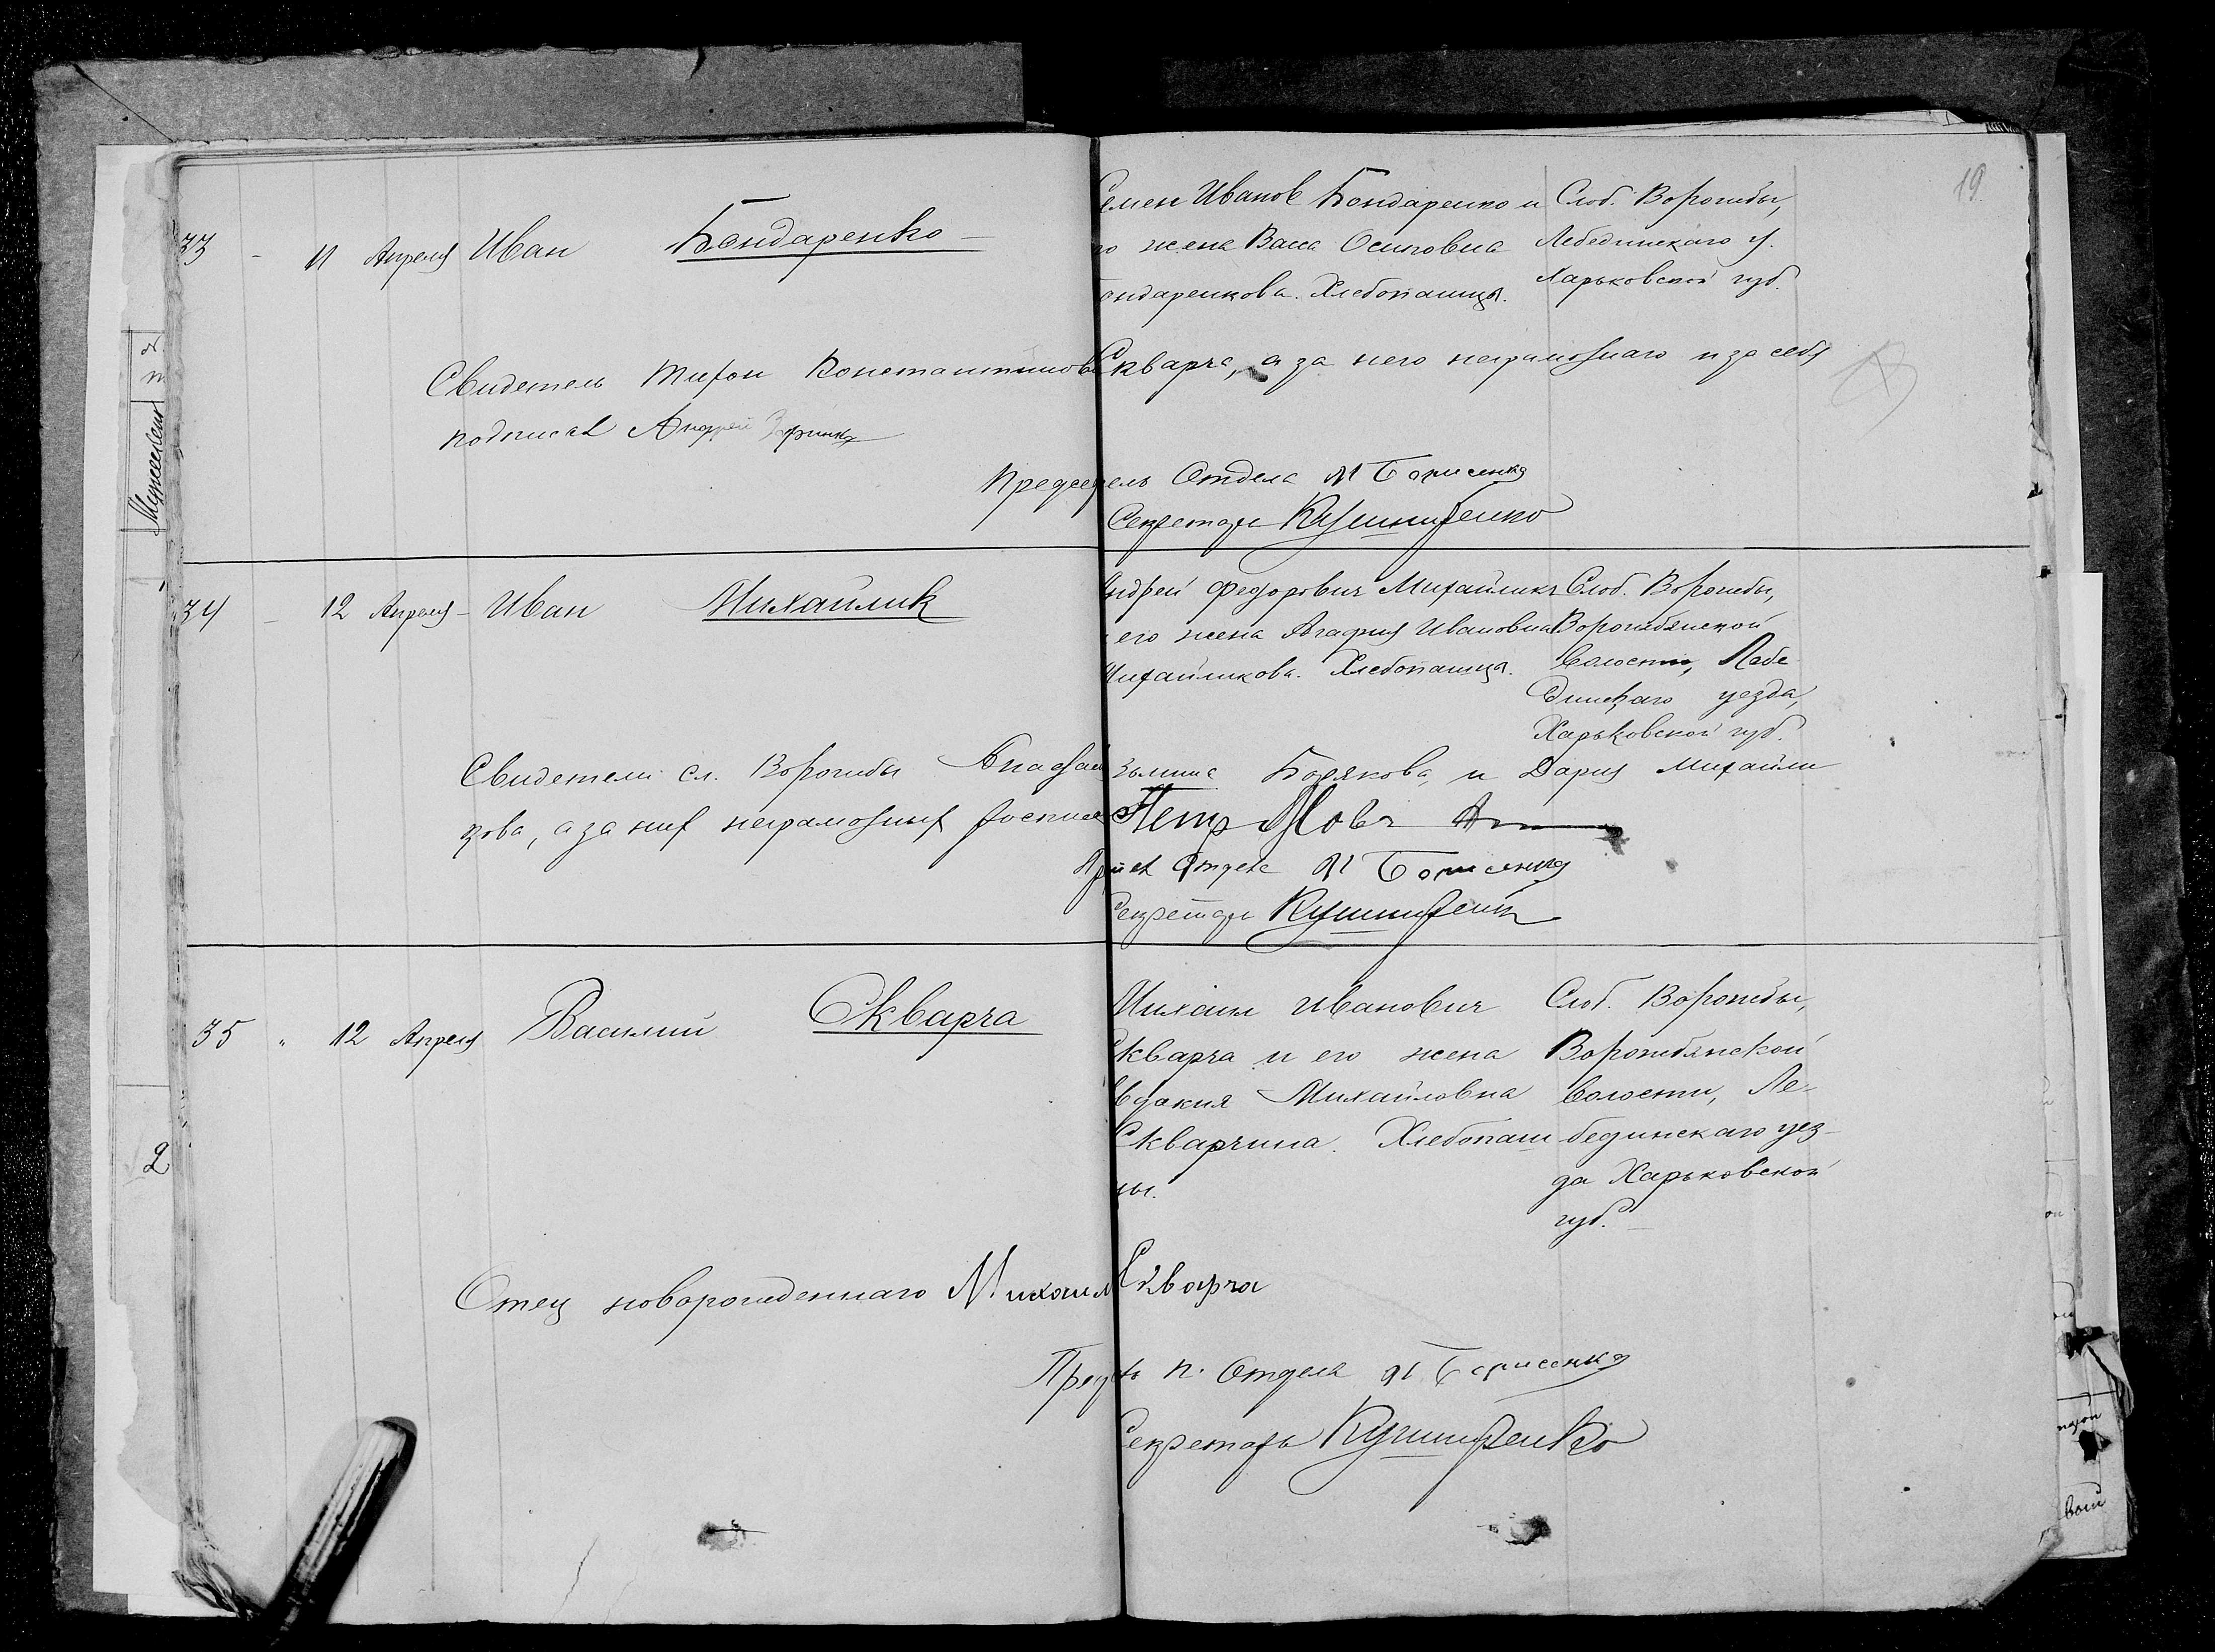 19
33 - 11 Апреля Иван Бондаренко -
Семен Иванов Бондаренко и
его жена Васса Осиповна
Бондаренкова. Хлебопашцы.
Слоб. Ворожбы,
Лебединскаго у.
Харьковской губ.
Свидетель Тихон Константинов Скварча, а за него неграмотнаго и за себя
подписал Андрей
Председатель Отдела М Борисенко
Секретарь Кушниренко
34 - 12 Апреля - Иван Михайлик
Андрей Федорович Михайлик
его жена Агафия Ивановна
Михайликова. Хлебопашцы.
Слоб. Ворожбы,
Ворожбянской
волости, Лебе
динскаго уезда,
Харьковской губ.
Свидетели сл. Ворожбы Борякова, и Дария Михайли
кова, а за них неграмотных росписался Петр
Отдела М Борисенко
Секретарь Кушниренко
35 " 12 Апреля Василий Скварча
Михаил Иванович
Скварча и его жена
Евдокия Михайловна
Скварчина. Хлебопаш
цы.
Слоб. Ворожбы,
Ворожбянской
волости, Ле-
бединскаго уез-
да Харьковской
губ. -
Отец новорожденнаго Михаил Скварча
Пред п. Отдела М Борисенко
Секретарь Кушниренко
2